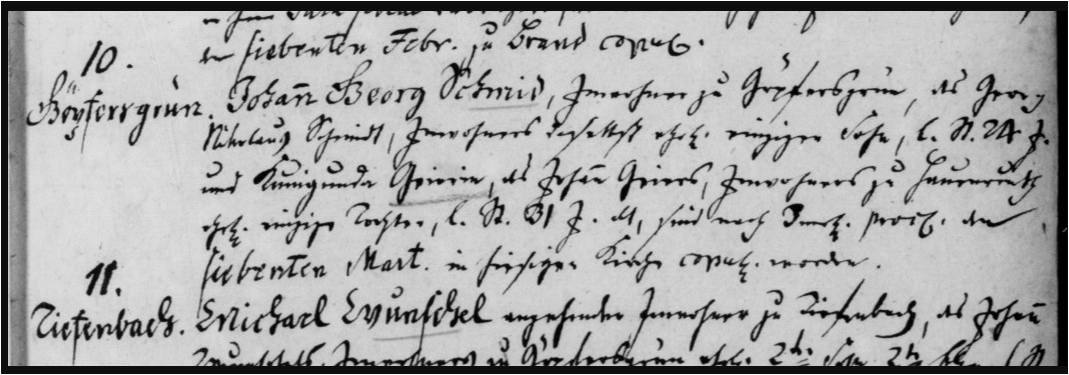 den siebenten Febr. zu Brand copul.
10.
Göpfersgrün. Johann Georg Schmid, Inwohner zu Göpfersgrün, des Georg
Nikolaus Schmidt, Inwohners daselbst ehel. einziger Sohn, l. St. 24 J.
und Kunigunda Geierin, des Johann Geiers, Inwohners zu
ehel. einzige Tochter, l. St. 31 J. alt, sind nach 3mal. procl. den
siebenten Mart. in hiesiger Kirche copul. worden.
11.
Tiefenbach. Michael Wunschel angehender Inwohner zu Tiefenbach, des Johann
Inwohners zu Göpfersgrün ehel. 2ter Sohn 2ter